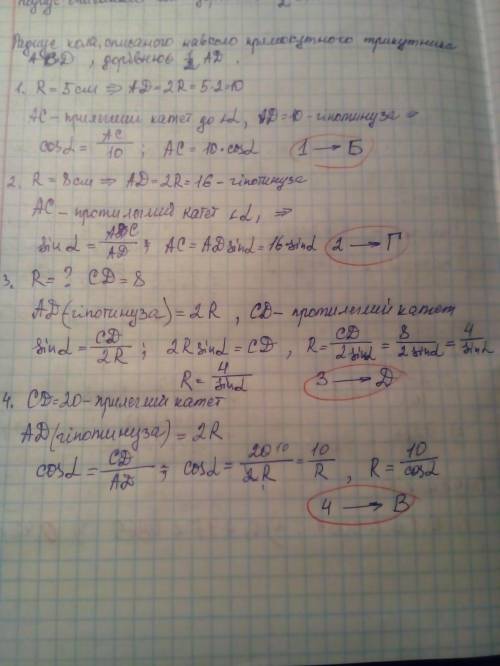 Радиус кола, описаного навколо прямокутного трикутника
ACD, дорівнює 1/2 AD.
1. R = 5 см ⇒ AD = 2R = 5·2 = 10
AC – прилеглий катет до ∠α, AD = 10 – гіпотинуза ⇒
cosα = AC/10 ; AC = 10·cosα 1 → Б
2. R = 8 см ⇒ AD = 2R = 16 – гіпотинуза
AC – протилеглий катет ∠α, ⇒
sinα = AC/AD ; AC = AD sinα = 16·sinα 2 → Г
3. R = ? CD = 8
AD (гіпотинуза) = 2R , CD – протилеглий катет
sinα = CD/2R ; 2R sinα = CD , R = CD/2sinα = 8/2sinα = 4/sinα
R = 4/sinα 3 → Д
4. CD = 20 – прилеглий катет
AD (гіпотинуза) = 2R
cosα = CD/AD ; cosα = 20/2R = 10/R , R = 10/cosα
4 → В